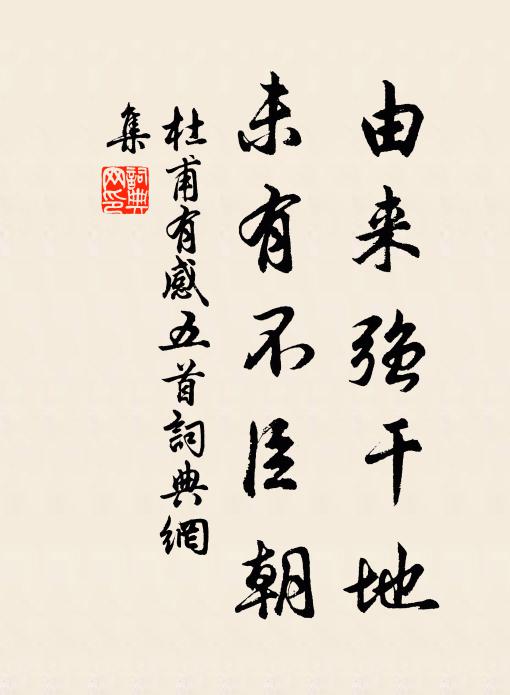 由来强干地
未有不臣朝
杜甫有感五首詞典網
集
詞典网印